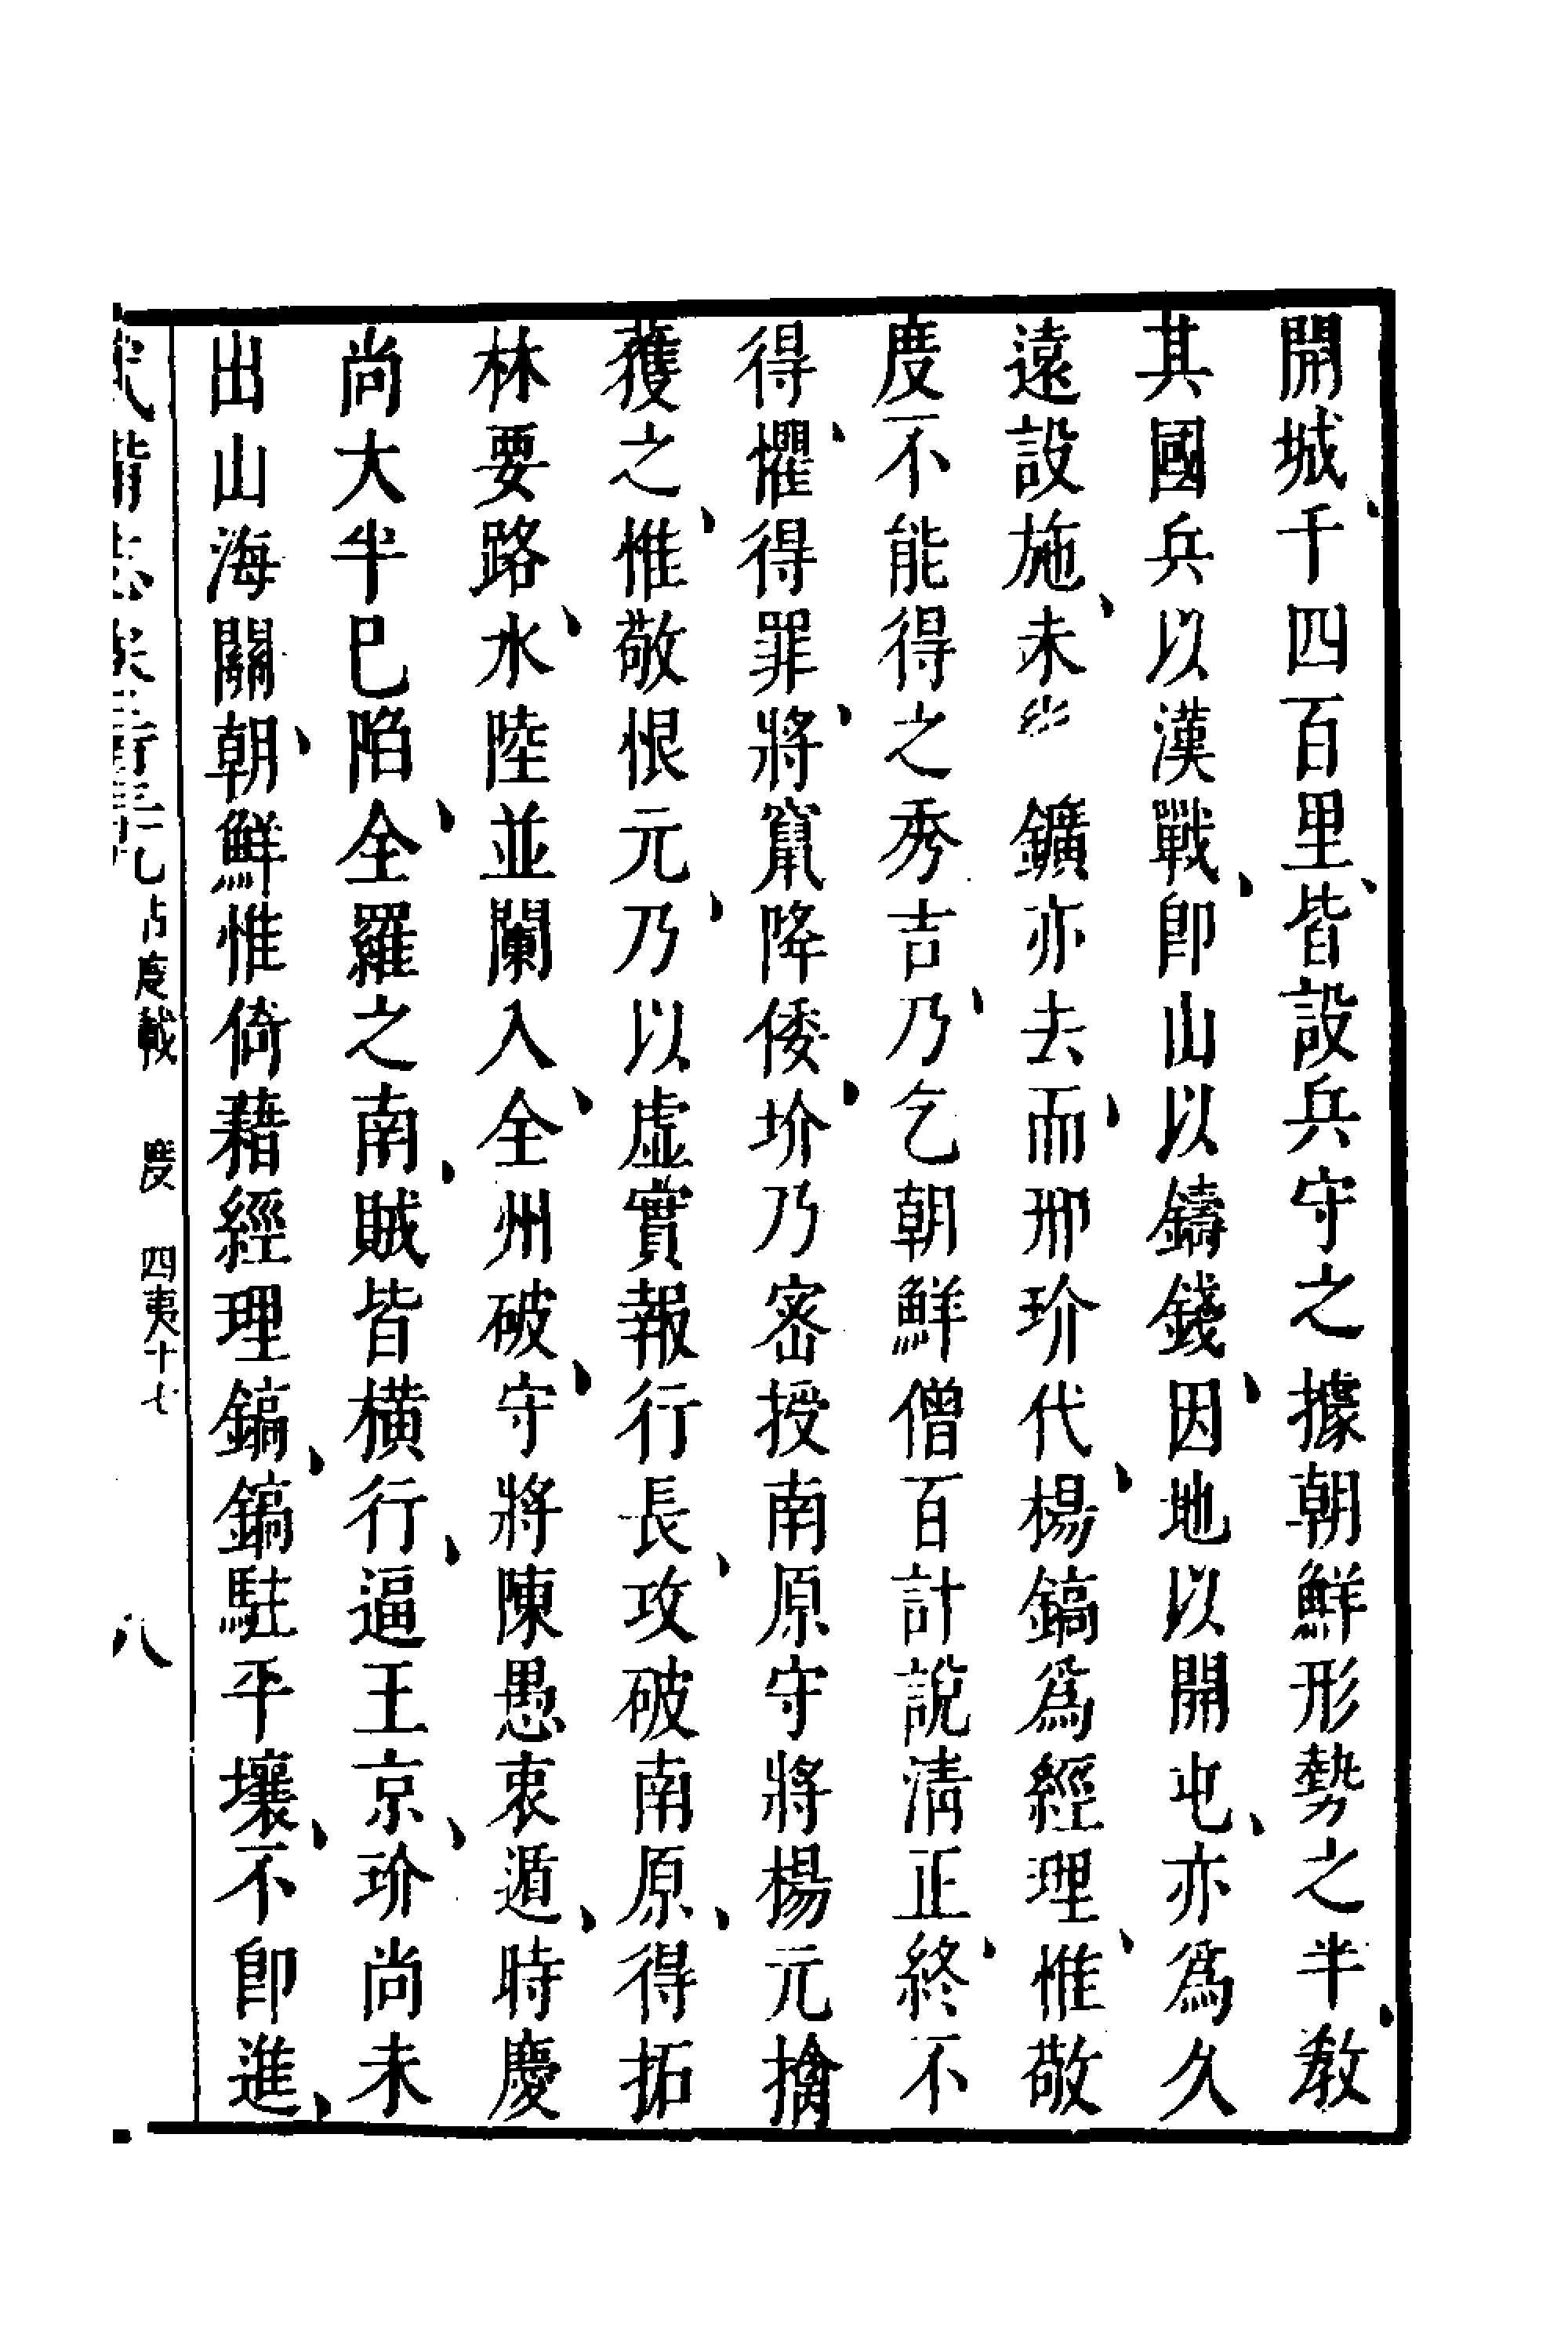 開城千四百里皆設兵守之據朝鮮形勢之半教
其國兵以漢戰卽山以鑄錢因地以開屯亦爲久
遠設施未 鑛亦去而邢玠代楊鎬爲經理惟敬
度不能得之秀吉乃乞朝鮮僧百計說清正終不
得懼得罪將竄降倭玠乃密授南原守將楊元擒
獲之惟敬恨元乃以虛實報行長攻破南原得拓
林要路水陸並闌入全州破守將陳愚衷遁時慶
尚大半已陷全羅之南賊皆橫行逼王京玠尚未
出山海關朝鮮惟倚藉經理鎬鎬駐平壤不卽進
占度載 度 四夷十七 八